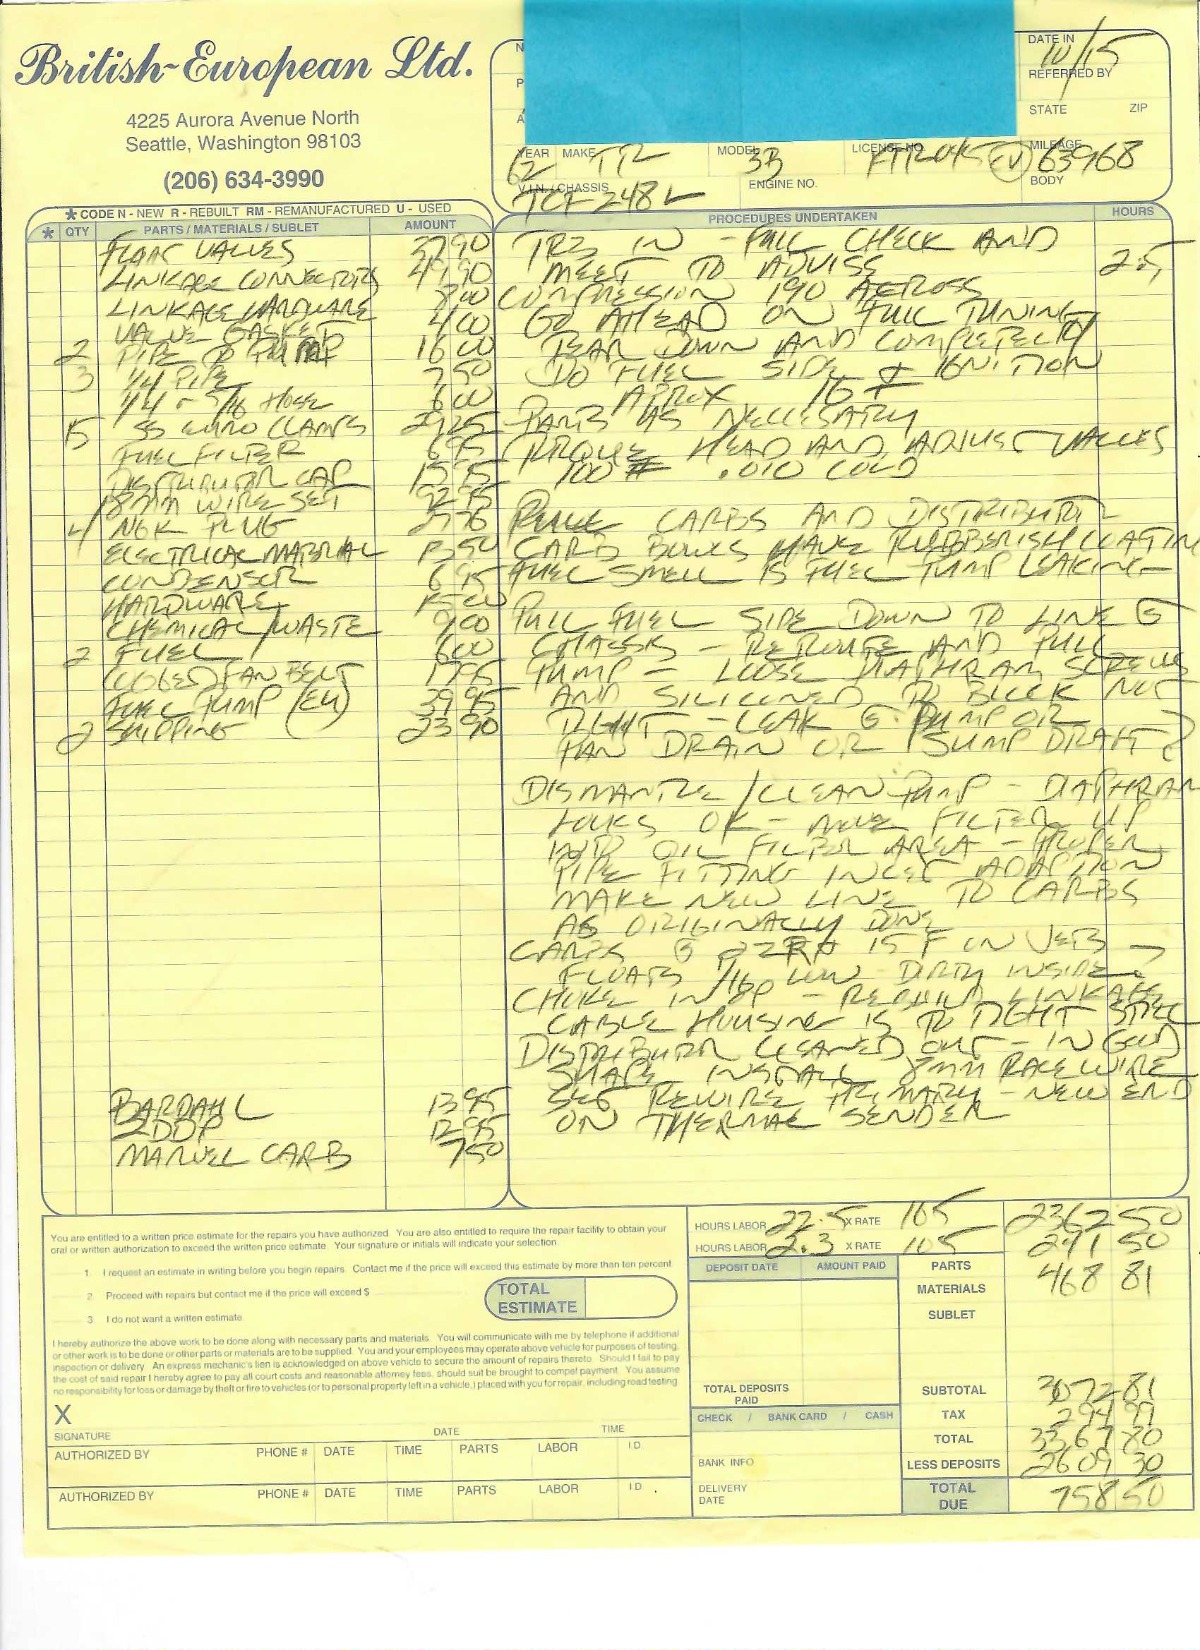 British-European Ltd.
4225 Aurora Avenue North
Seattle, Washington 98103
(206) 634-3990
N
P
A
DATE IN 10/15
REFERRED BY
STATE ZIP
YEAR 62 MAKE TR MODEL 3B LICENSE NO. MILEAGE 63968
V.I.N. / CHASSIS TCF 248 L ENGINE NO. BODY
* CODE N - NEW R - REBUILT RM - REMANUFACTURED U - USED
* QTY PARTS / MATERIALS / SUBLET AMOUNT
FLOAT VALVES 37 90
LINKAGE CONNECTORS
LINKAGE HARDWARE 8 00
VALVE GASKET 4 00
2 PIPE 16 00
3 1/4 PIPE 7 50
1/4 - 5/16 HOSE 6 00
15 SS EURO CLAMPS 29 25
FUEL FILTER 6 95
DISTRIBUTOR CAP 15 75
8MM WIRE SET 92 95
4 NGK PLUG
ELECTRICAL MATERIAL
CONDENSOR 6 95
HARDWARE
CHEMICAL/WASTE 9 00
2 FUEL 6 00
FAN BELT 17 95
FUEL PUMP 39 95
2 SHIPPING 23 90
BARDAHL 13 95
ZDDP 12 95
MARVEL CARB 7 50
PROCEDURES UNDERTAKEN HOURS
TR3 IN - FULL CHECK AND
MEET TO ADVISE 2.5
COMPRESSION 190 ACROSS
GO AHEAD ON FULL TUNING
TEAR DOWN AND COMPLETELY
DO FUEL SIDE + IGNITION
APROX 16
PARTS AS NECCESARY
TORQUE HEAD AND ADJUST VALVES
100 # .010 COLD
CARBS AND DISTRIBUTR
CARB BOWLS HAVE RUBBERISH COATIN
FUEL SMELL IS FUEL PUMP LEAKING
PULL FUEL SIDE DOWN TO LINE @
CHASSIS - REROUTE AND PULL
PUMP - LOOSE DIAPHRAM SCREWS
AND SILICONED TO BLOCK NOT
RIGHT - LEAK @ PUMP OR
PAN DRAIN OR SUMP DRAFT?
DISMANTLE/CLEAN PUMP - DIAPHRAM
LOOKS OK - MOVE FILTER UP
INTO OIL FILTER AREA - PROPER
PIPE FITTING INLET ADAPTION
MAKE NEW LINE TO CARBS
AS ORIGINALLY DONE
CARBS @ 15 F ON JETS
FLOATS LOW DIRTY INSIDE
CHOKE INOP - REBUILD LINKAGE
CABLE HOUSING IS TO TIGHT STILL
DISTRIBUTR CLEANED OUT - IN GOOD
SHAPE INSTALL 8MM RACE WIRE
SET REWIRE PRIMARY - NEW END
ON THERMAL SENDER
You are entitled to a written price estimate for the repairs you have authorized. You are also entitled to require the repair facility to obtain your
oral or written authorization to exceed the written price estimate. Your signature or initials will indicate your selection.
1. I request an estimate in writing before you begin repairs. Contact me if the price will exceed this estimate by more than ten percent
2. Proceed with repairs but contact me if the price will exceed $
3 I do not want a written estimate
TOTAL
ESTIMATE
I hereby authorize the above work to be done along with necessary parts and materials. You will communicate with me by telephone if additional
or other work is to be done or other parts or materials are to be supplied. You and your employees may operate above vehicle for purposes of testing,
inspection or delivery. An express mechanic's lien is acknowledged on above vehicle to secure the amount of repairs thereto. Should I fail to pay
the cost of said repair I hereby agree to pay all court costs and reasonable attorney fees, should suit be brought to compel payment. You assume
no responsibility for loss or damage by theft or fire to vehicles (or to personal property left in a vehicle,) placed with you for repair, including road testing.
X
SIGNATURE DATE TIME
AUTHORIZED BY PHONE # DATE TIME PARTS LABOR I D
AUTHORIZED BY PHONE # DATE TIME PARTS LABOR I D .
HOURS LABOR 22.5 X RATE 105 2362 50
HOURS LABOR 2.3 X RATE 105 241 50
DEPOSIT DATE AMOUNT PAID
PARTS
MATERIALS 468 81
SUBLET
TOTAL DEPOSITS
PAID
SUBTOTAL 3072 81
CHECK / BANK CARD / CASH
TAX 294 99
TOTAL 3367 80
BANK INFO
LESS DEPOSITS 2609 30
DELIVERY
DATE
TOTAL
DUE 758 50